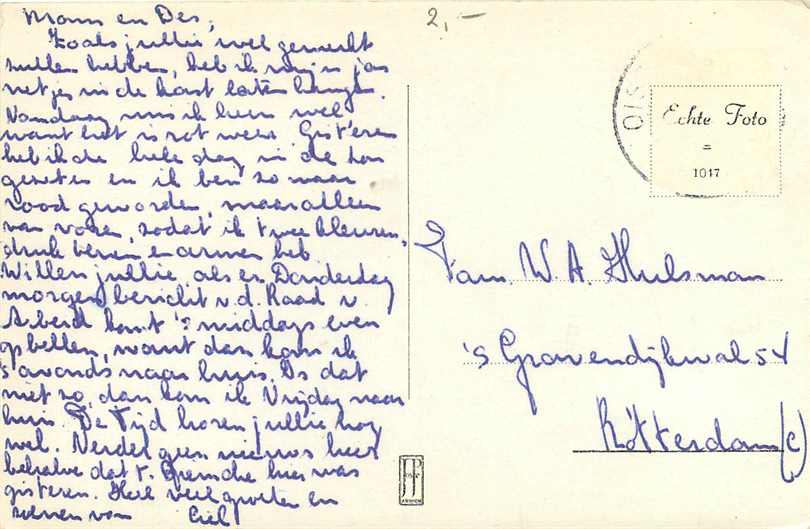 Mam en Des,
Zoals jullie wel gemerkt
zullen hebben, heb ik mijn jas
netjes in de kast laten hangen.
Vandaag mis ik hem wel
want het is rot weer. Gisteren
heb ik de hele dag in de zon
gezeten en ik ben zo waar
rood geworden, maar alleen
van voren, zodat ik twee kleuren-
druk benen en armen heb.
Willen jullie, als er Donderdag
morgen bericht v.d. Raad v.
Arbeid komt 's middags even
opbellen, want dan kom ik
s'avonds naar huis. Is dat
niet zo, dan kom ik Vrijdag naar
huis. De Tijd horen jullie nog
wel. Verder geen nieuws hier
behalve dat t. hier was
gisteren. Heel veel groeten en
zoenen van Ciel
2,—
OIS
Echte Foto
=
1017
Fam. W. A. Hulsman
's Gravendijkwal 54
Rotterdam (c)
JosPé